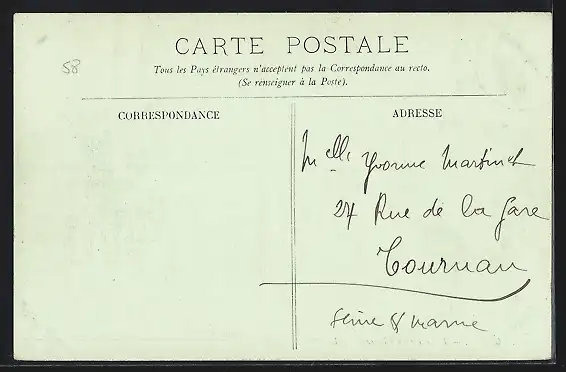 58
CARTE POSTALE
Tous les Pays étrangers n'acceptent pas la Correspondance au recto.
(Se renseigner à la Poste).
CORRESPONDANCE
ADRESSE
Melle Yvonne Martinet
27 Rue de la Gare
Tournan
Seine & Marne